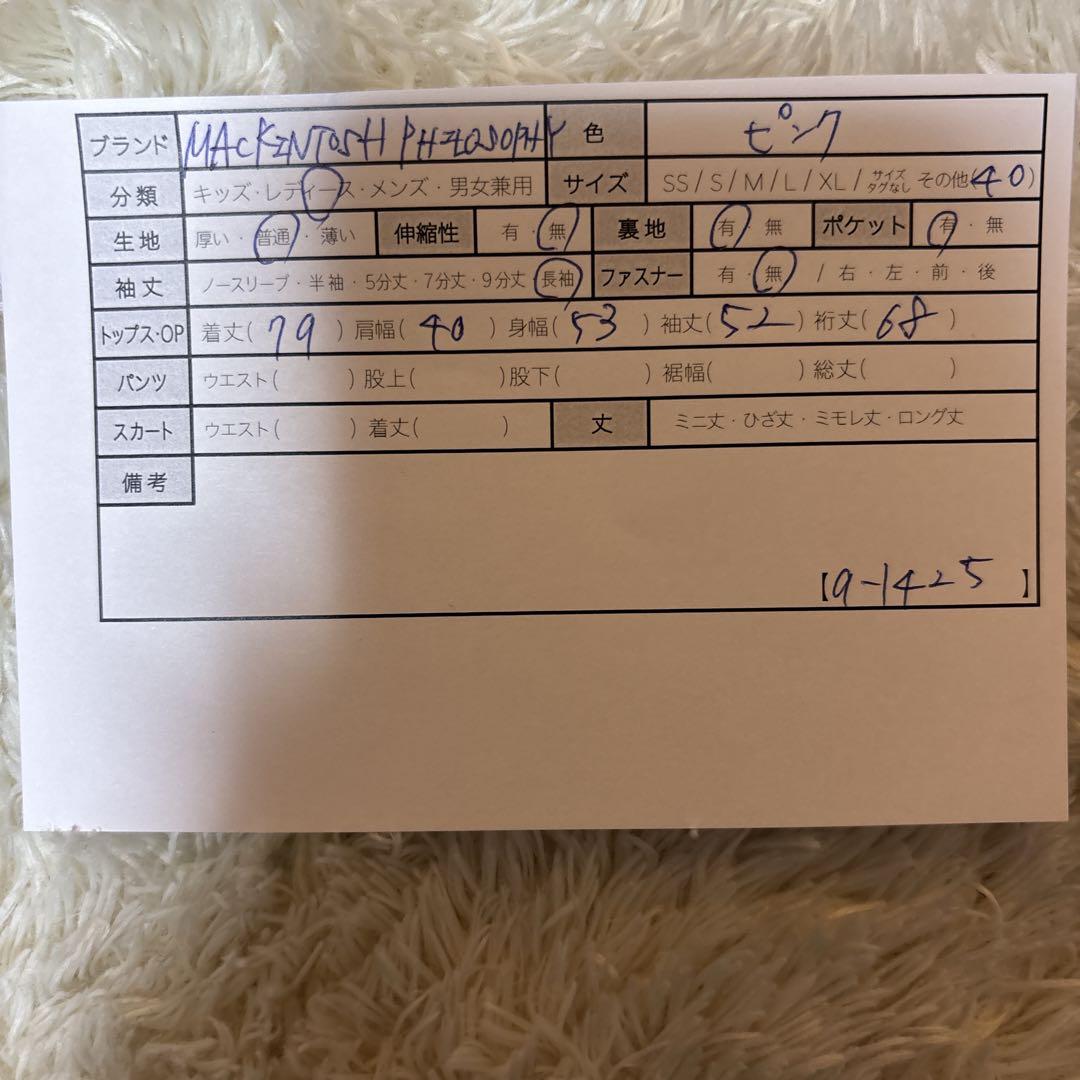 ブランド MACKINTOSH PHILOSOPHY 色 ピンク
分類 キッズ・レディース・メンズ・男女兼用 サイズ SS/S/M/L/XL/サイズタグなし その他(40)
生地 厚い・普通・薄い 伸縮性 有・無 裏地 有・無 ポケット 有・無
袖丈 ノースリーブ・半袖・5分丈・7分丈・9分丈・長袖 ファスナー 有・無 / 右・左・前・後
トップス・OP 着丈(79) 肩幅(40) 身幅(53) 袖丈(52) 裄丈(68)
パンツ ウエスト( ) 股上( ) 股下( ) 裾幅( ) 総丈( )
スカート ウエスト( ) 着丈( ) 丈 ミニ丈・ひざ丈・ミモレ丈・ロング丈
備考
【9-1425】